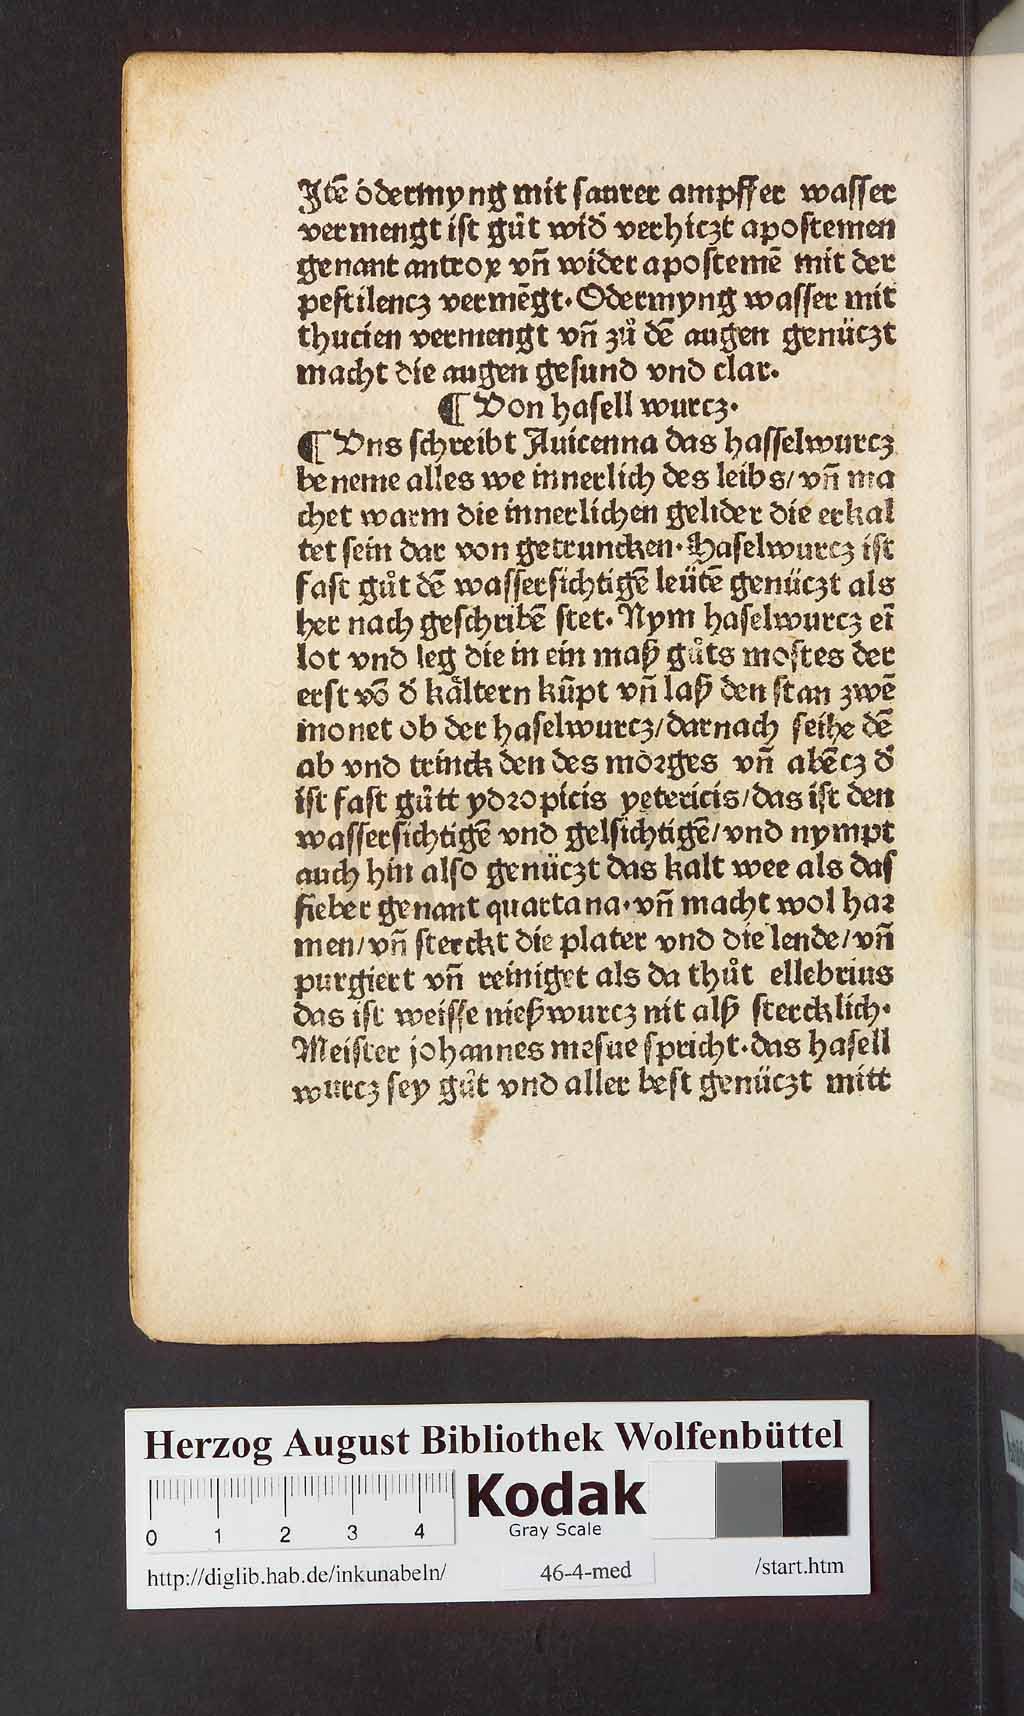 Jtē ódermyng mit saurer ampffer wasser
vermengt ist gůt wid̾ verhiczt apostemen
genant antrox vn̄ wider apostemē mit der
pestilencz vermēgt. Odermyng wasser mit
thucien vermengt vn̄ zů dē augen genüczt
macht die augen gesund vnd clar.
¶ Von hasell wurcz.
¶ Vns schreibt Auicenna das hasselwurcz
beneme alles we innerlich des leibs/ vn̄ ma
chet warm die innerlichen gelider die erkal
tet sein dar von getruncken. Haselwurcz ist
fast gůt dē wassersichtigē leütē genüczt als
her nach geschribē stet. Nym haselwurcz eī
lot vnd leg die in ein maß gůts mostes der
erst vō d̾ kaͤltern kūpt vn̄ laß den stan zwē
monet ob der haselwurcz/ darnach seihe dē
ab vnd trinck den des morges vn̄ abēcz d̾
ist fast gůtt ydropicis yetericis/ das ist den
wassersichtigē vnd gelsichtigē/ vnd nympt
auch hin also genüczt das kalt wee als das
fieber genant quartana. vn̄ macht wol har
men/ vn̄ sterckt die plater vnd die lende/ vn̄
purgiert vn̄ reiniget als da thůt ellebrius
das ist weisse nießwurcz nit alß stercklich.
Meister johannes mesue spricht. das hasell
wurcz sey gůt vnd aller best genüczt mitt
Herzog August Bibliothek Wolfenbüttel
Kodak
Gray Scale
0 1 2 3 4
http://diglib.hab.de/inkunabeln/ 46-4-med /start.htm